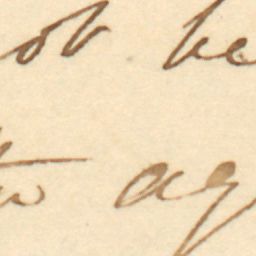 ot be
to ag